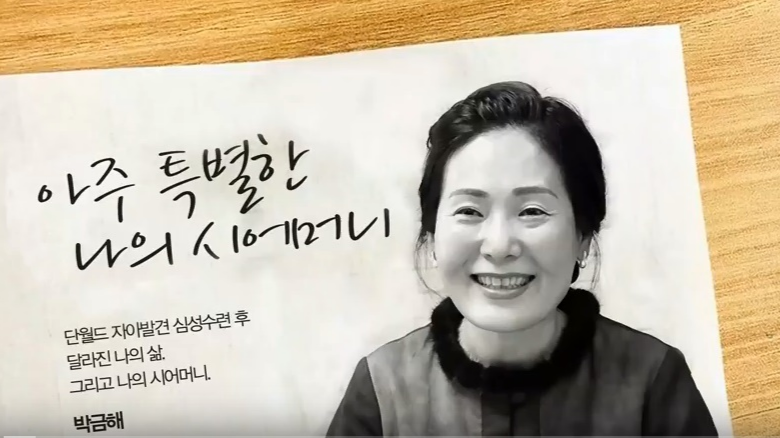 아주 특별한
나의 시어머니
단월드 자아발견 심성수련 후
달라진 나의 삶.
그리고 나의 시어머니.
박금해